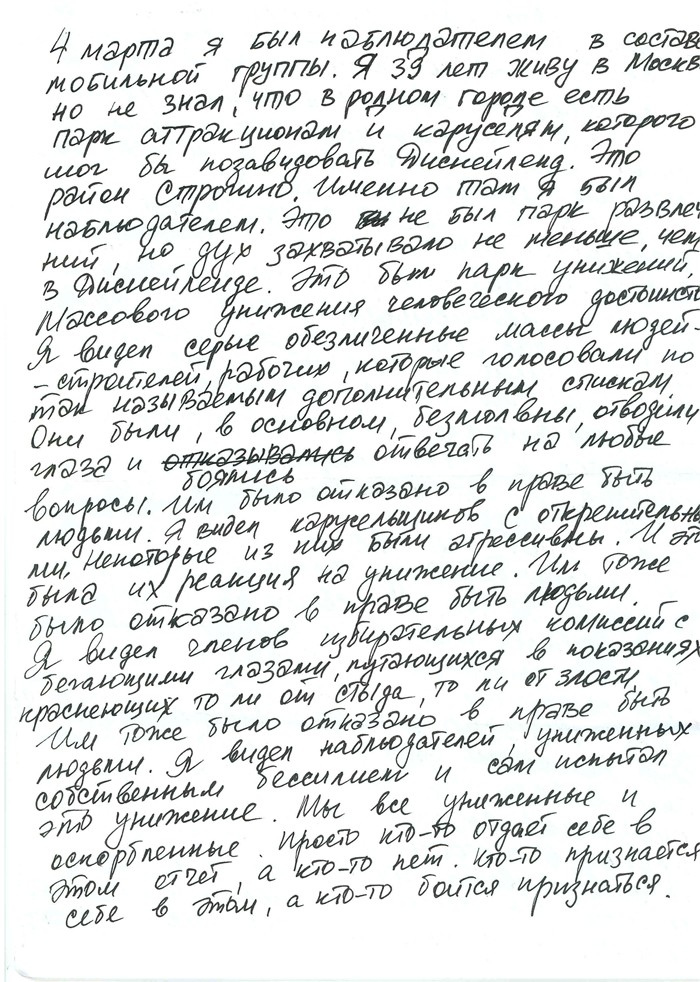 4 марта я был наблюдателем в состав
мобильной группы. Я 39 лет живу в Москв
но не знал, что в родном городе есть
парк аттракционам и каруселям, которого
мог бы позавидовать Диснейленд. Это
район Строгино. Именно там я был
наблюдателем. Это не был парк развлеч
ний, но дух захватывало не меньше, чем
в Диснейленде. Это был парк унижений,
Массового унижения человеческого достоинст
Я видел серые обезличенные массы людей-
-строителей, рабочих, которые голосовали по
так называемым дополнительным спискам.
Они были, в основном, безмолвны, отводили
глаза и отказывались отвечать на любые
боялись
вопросы. Им было отказано в праве быть
людьми. Я видел карусельщиков с открепительны
ми, некоторые из них были агрессивны. И эт
была их реакция на унижение. Им тоже
было отказано в праве быть людьми.
Я видел членов избирательных комиссий с
бегающими глазами, путающихся в показаниях
краснеющих то ли от стыда, то ли от злости
Им тоже было отказано в праве быть
людьми. Я видел наблюдателей, униженных
собственным бессилием и сам испытал
это унижение. Мы все униженные и
оскорбленные. Просто кто-то отдаёт себе в
этом отчёт, а кто-то нет. Кто-то признается
себе в этом, а кто-то боится признаться.